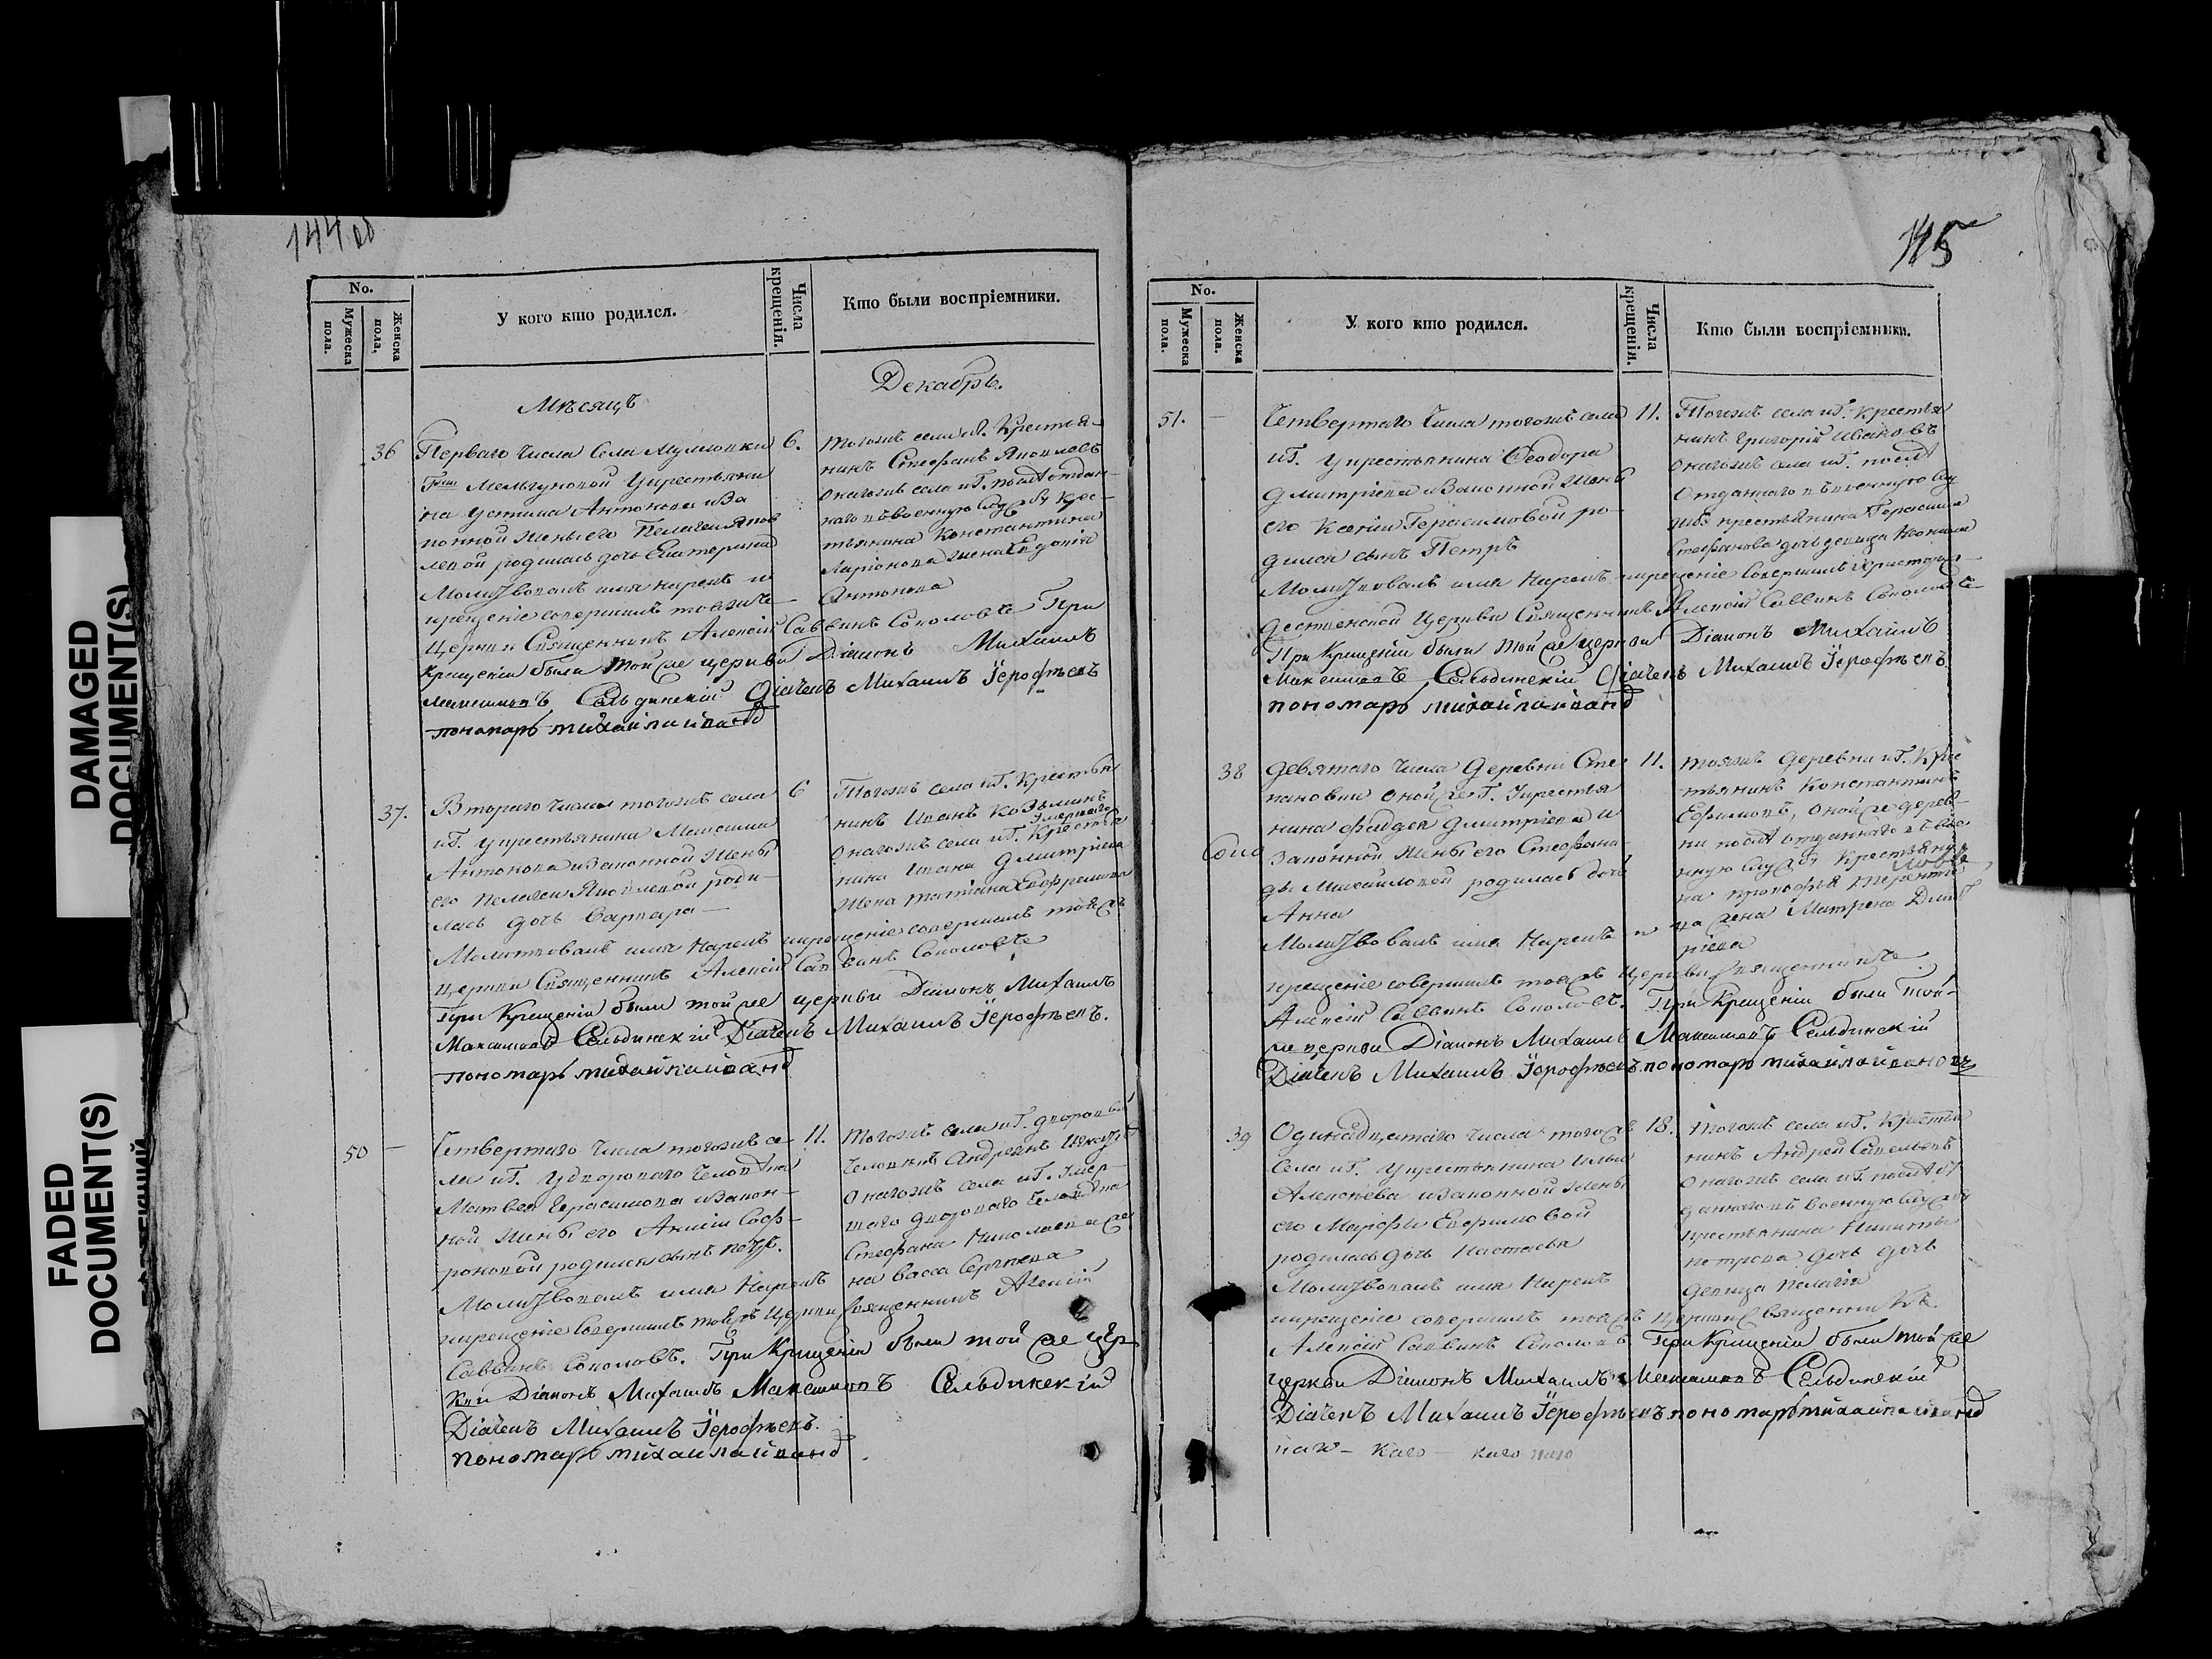 144 об
No.
Мужеска пола.
Женска пола.
У кого кто родился.
Числа крещенія.
Кто были воспріемники.
Мѣсяцъ
Декабрь.
36
Перваго числа села
Г-жи Мельгуновой у крестьяни
на Устина Антонова и за
конной жены его Пелагеи Яков
левой родилась дочь Екатерина
Молитвовалъ имя нарекъ и
крещеніе совершилъ тояжъ
церкви Священникъ Алексій Саввинъ Соколовъ При
Крещеніи были той же церкви Діаконъ Михаилъ
Максимовъ Сельдинскій Діачекъ Михаилъ Іерофѣевъ
пономарь михайла иванов
6.
тогожъ села и Г. Крестья-
нинъ Стефанъ Яковлевъ
онагожъ села и Г. послѣ отдан-
наго въ военную службу крес-
тьянина Константина
Ларіонова жена Евдокія
Антонова
37.
Втораго числа тогожъ села
и Г. у крестьянина Максима
Антонова и законной жены
его Пелагеи Яковлевой роди-
лась дочь Варвара —
Молитвовалъ имя нарекъ и крещеніе совершилъ тояжъ
церкви Священникъ Алексій Саввинъ Соколовъ
При Крещеніи были той же церкви Діаконъ Михаилъ
Максимовъ Сельдинскій Діачекъ Михаилъ Іерофѣевъ.
пономарь михайла иванов
6
Тогожъ села и Г. Крестья
нинъ Иванъ Козьминъ
умершаго
онагожъ села и Г. Крестья
нина Ивана Дмитріева
жена Татіана Ефремова
50 —
Четвертаго числа тогожъ се
ла и Г. у двороваго человѣка
Матвея Герасимова и закон-
ной жены его Анисіи Соф-
роновой родился сынъ Петръ.
Молитвовалъ имя нарекъ
и крещеніе совершилъ тояжъ церкви Священникъ Алексій
Саввинъ Соколовъ. При Крещеніи были той же цер
кви Діаконъ Михаилъ Максимовъ Сельдинскій
Діачекъ Михаилъ Іерофѣевъ.
пономарь михайла иванов
11.
Тогожъ села и Г. дворовый
человѣкъ Андреянъ
онагожъ села и Г. умер-
шаго двороваго человѣка
Стефана Николаева же
на Васса Сергѣева
145
No.
Мужеска пола.
Женска пола.
У кого кто родился.
Числа крещенія.
Кто были воспріемники.
51. —
Четвертаго числа тогожъ села
и Г. у крестьянина Феодора
Дмитріева и законной жены
его Ксеніи Герасимовой ро-
дился сынъ Петръ
Молитвовалъ имя нарекъ и крещеніе совершилъ Христорож
дественской церкви Священникъ Алексій Саввинъ Соколовъ
При Крещеніи были той же церкви Діаконъ Михаилъ
Максимовъ Сельдинскій Діачекъ Михаилъ Іерофѣевъ.
пономарь михайла иванов
11.
Тогожъ села и Г. крестья
нинъ Григорій Ивановъ
онагожъ села и Г. послѣ
отданнаго въ военную слу
жбу крестьянина Герасима
Стефанова дочь девица
38
Девятаго числа деревни Сте
пановки оной же Г. у крестья
нина Фадея Дмитріева и
законной жены его Стефани-
ды Михайловой родилась дочь
Анна
Молитвовалъ имя нарекъ и
крещеніе совершилъ тояжъ церкви Священникъ
Алексій Саввинъ Соколовъ. При Крещеніи были той-
же церкви Діаконъ Михаилъ Максимовъ Сельдинскій
Діачекъ Михаилъ Іерофѣевъ. пономарь михайла ивановъ
11.
тояжъ деревни и Г. Кре
стьянинъ Константинъ
Ефимовъ, оной же дерев-
ни послѣ отданнаго въ вое
нную службу крестьяни
на Прокофья Теренть
жена Матрена Дмит
ріева
39
Одинадцатаго числа тогожъ
села и Г. у крестьянина Ильи
Алексѣева и законной жены
его Марфы Ефимовой
родилась дочь Настасья
Молитвовалъ имя нарекъ
и крещеніе совершилъ тояжъ церкви Священникъ
Алексій Саввинъ Соколовъ При Крещеніи были той же
церкви Діаконъ Михаилъ Максимовъ Сельдинскій
Діачекъ Михаилъ Іерофѣевъ пономарь михайла иванов
18.
Тогожъ села и Г. Крестья
нинъ Андрей Савельевъ
онагожъ села и Г. послѣ от
даннаго въ военную службу
крестьянина Никиты
Петрова дочь дочь
девица Пелагія
DAMAGED
DOCUMENT(S)
FADED
DOCUMENT(S)